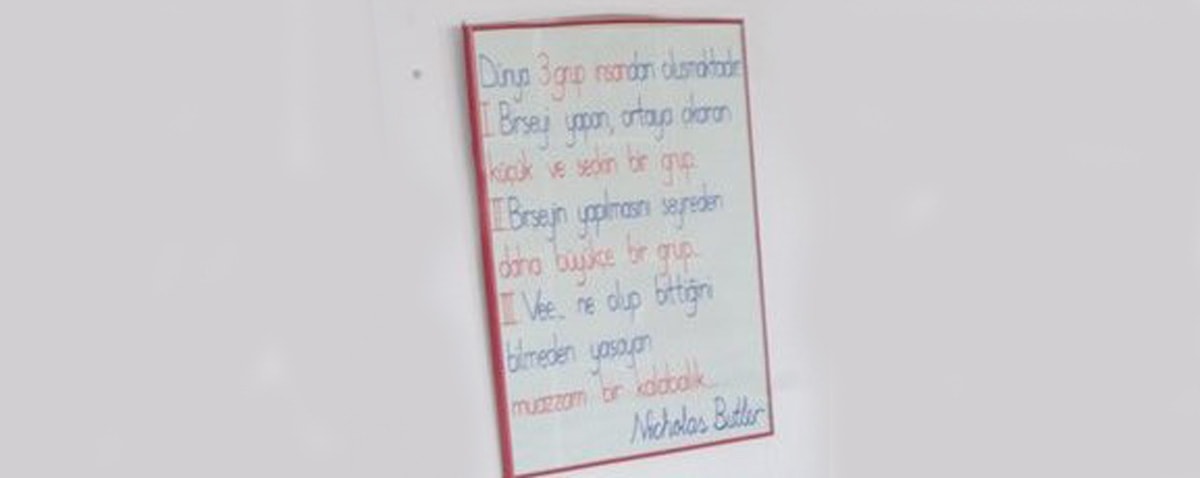 Dünya 3 grup insandan oluşmaktadır
I Birşeyi yapan, ortaya çıkaran
küçük ve seçkin bir grup.
II Birşeyin yapılmasını seyreden
daha büyükçe bir grup...
III Vee... ne olup bittiğini
bilmeden yaşayan
muazzam bir kalabalık...
Nicholas Butler